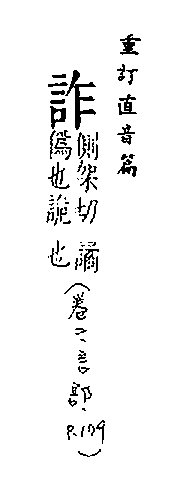 重訂直音篇
詐
側架切譎
僞也詭也
(卷二言部、P.179)